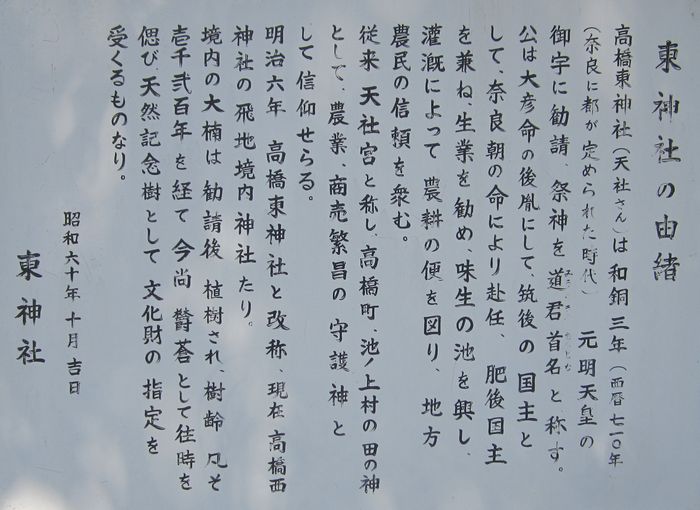 東神社の由緒
高橋東神社（天社さん）は和銅三年（西暦七一〇年
（奈良に都が定められた時代）　元明天皇の
御宇に勧請、祭神を道君首名と称す。
公は大彦命の後胤にして、筑後の国主と
して、奈良朝の命により赴任、肥後国主
を兼ね、生業を勧め、味生の池を興し、
灌漑によって農耕の便を図り、地方
農民の信頼を衆む。
従来　天社宮と称し、高橋町、池ノ上村の田の神
として、農業、商売繁昌の守護神と
して信仰せらる。
明治六年　高橋東神社と改称、現在高橋西
神社の飛地境内神社たり。
境内の大楠は勧請後　植樹され、樹齢　凡そ
壱千弐百年を経て今尚　欝蒼として往時を
偲び天然記念樹として文化財の指定を
受くるものなり。
昭和六十年十月吉日
東神社